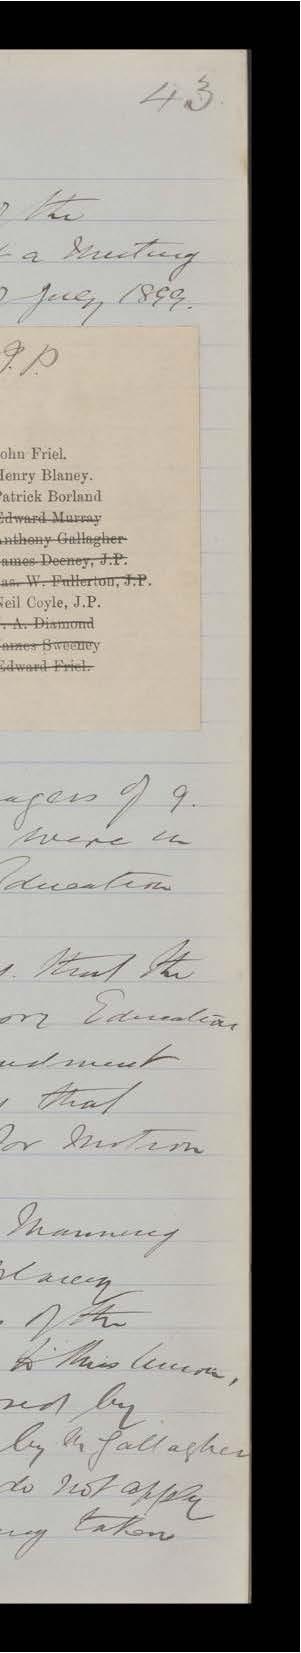 43
the
a Meeting
July 1899.
J.P.
ohn Friel.
Henry Blaney.
Patrick Borland
Edward Murray
Anthony Gallagher
ames Deeney, J.P.
as. W. Fullerton, J.P.
Neil Coyle, J.P.
. A. Diamond
ames Sweeney
Edward Friel.
agers of 9.
were in
Education
that the
Education
endment
that
for Motion
Manning
Blaney
of the
to this Union,
by
by Mr Gallagher
do not apply
taken